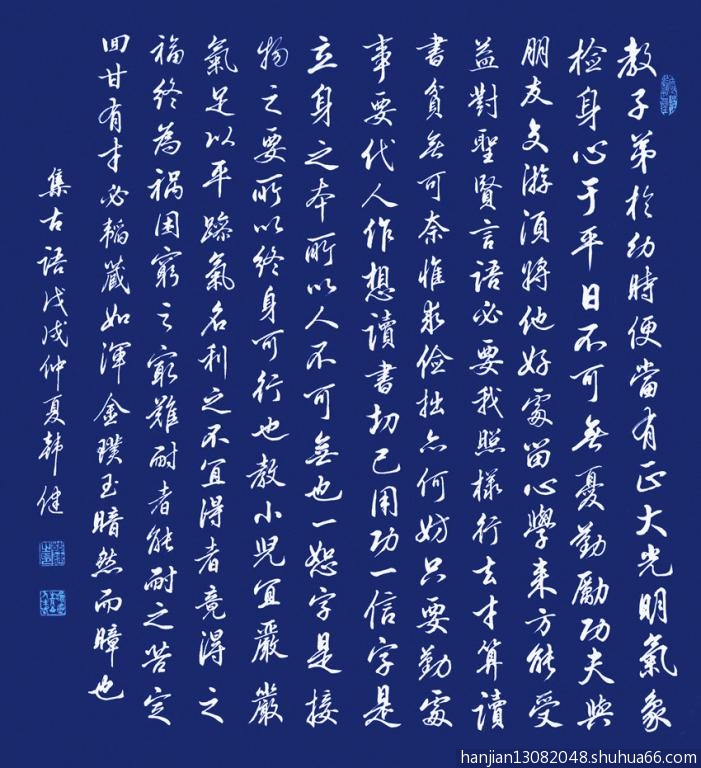 教子弟於幼時便當有正大光明氣象
检身心于平日不可無憂勤勵功夫與
朋友交游須將他好處留心學来方能受
益對聖賢言語必要我照樣行去才算讀
書貧無可奈惟求俭拙亦何妨只要勤處
事要代人作想讀書切己用功一信字是
立身之本所以人不可無也一恕字是接
物之要所以終身可行也教小児宜嚴嚴
氣足以平躁氣名利之不宜得者竟得之
福終為禍困窮之窮難耐者能耐之苦定
回甘有才必韬藏如渾金璞玉暗然而暲也
集古語戊戌仲夏韩健
hanjian13082048.shuhua66.com